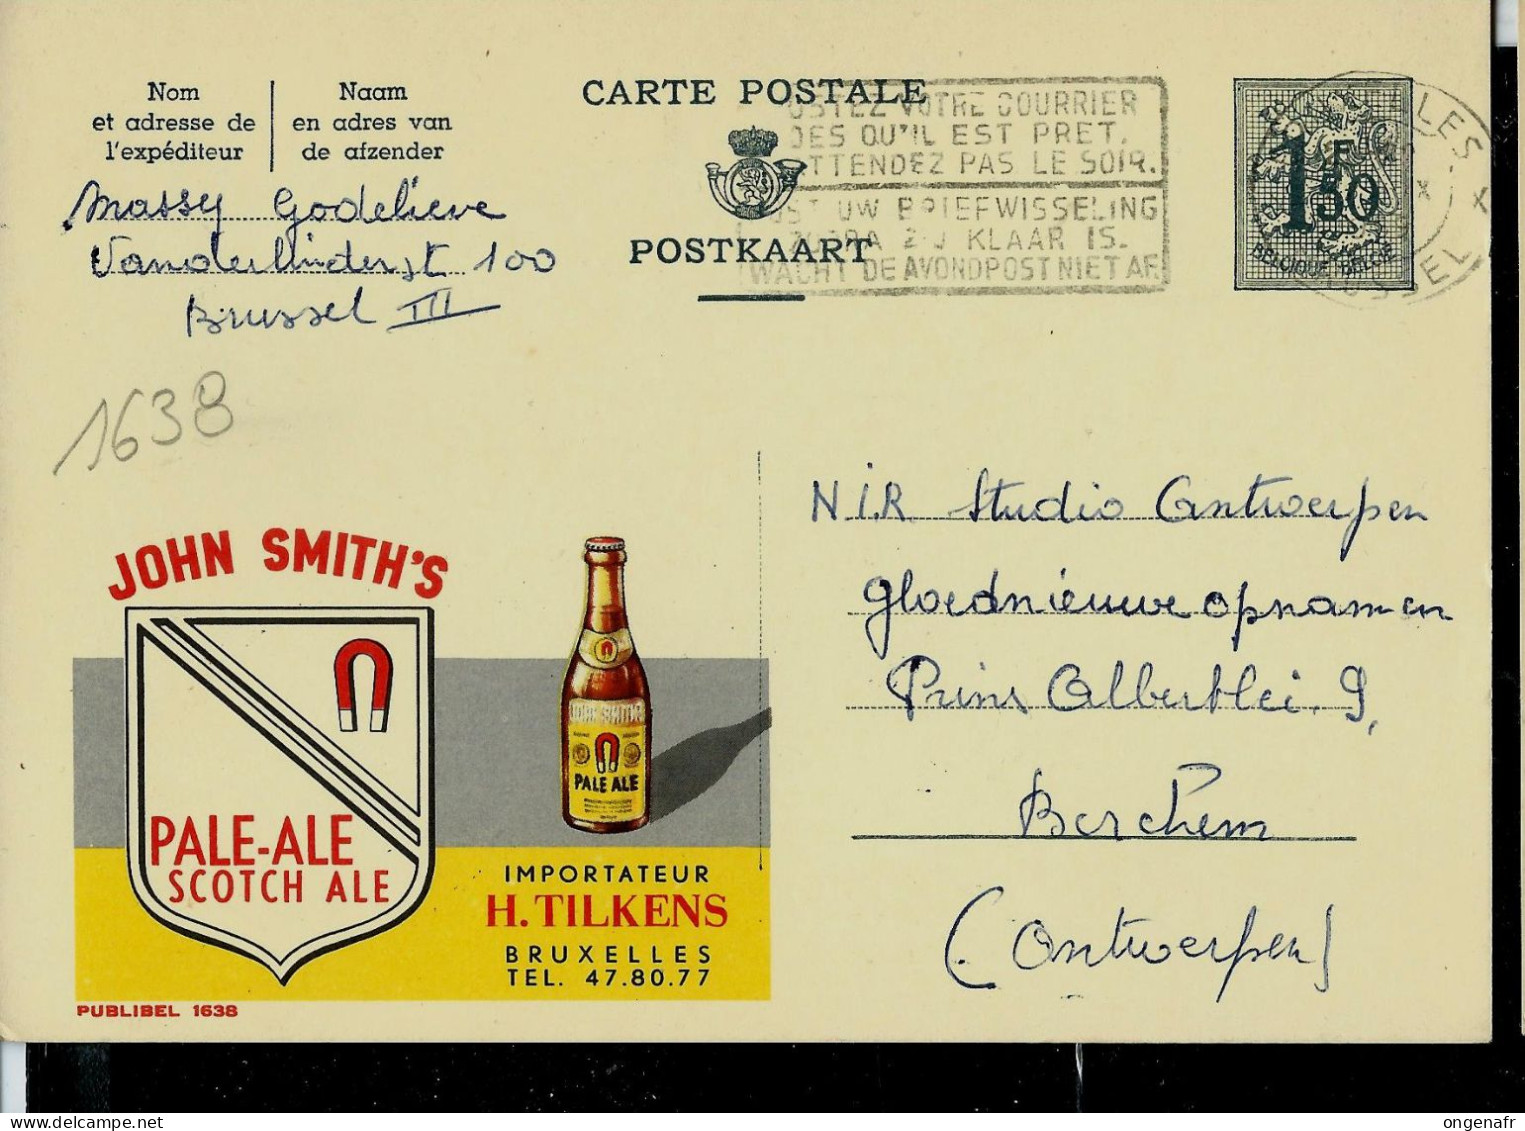 Nom
et adresse de
l'expéditeur
Naam
en adres van
de afzender
CARTE POSTALE
POSTKAART
OSTEZ VOTRE COURRIER
DES QU'IL EST PRET.
TTENDEZ PAS LE SOIR.
UW BRIEFWISSELING
KLAAR IS.
WACHT DE AVONDPOST NIET AF
1F50
BELGIQUE-BELGIË
Massy Godelieve
Vanderlinderst 100
Brussel III
1638
N.I.R. Studio Antwerpen
gloednieuwe opnamen
Prins Albertlei. 9,
Berchem
(Antwerpen)
JOHN SMITH'S
PALE-ALE
SCOTCH ALE
JOHN SMITH'S
PALE ALE
IMPORTATEUR
H. TILKENS
BRUXELLES
TEL. 47.80.77
PUBLIBEL 1638
ongenafr